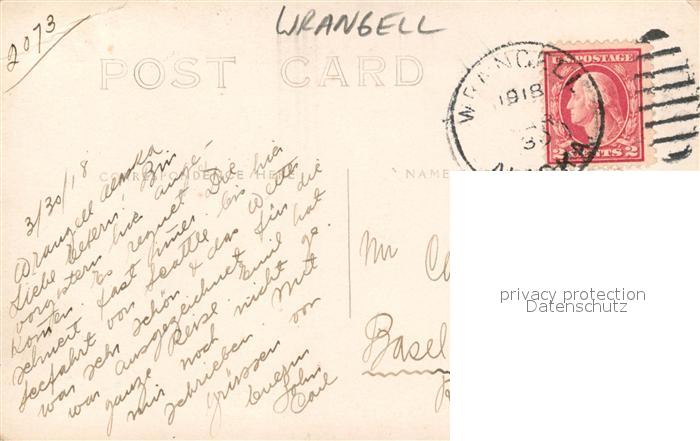 2073
WRANGELL
POST CARD
WRANGELL
1918
ALASKA
U.S. POSTAGE
2 CENTS 2
CORRESPONDENCE HERE
NAME
3/30/18
Wrangell Alaska
Liebe Eltern! Bin
vorgestern hier ange-
kommen. Es regnet die
schneit fast immer. Die
Seefahrt von Seattle bis hier
war sehr schön & das Wetter
was ausgezeichnet für die
ganze Reise Emil hat
mir noch nicht ge
schrieben. Mit
Grüssen von
Euerm
Sohn
Carl
Mr
Basel
privacy protection
Datenschutz